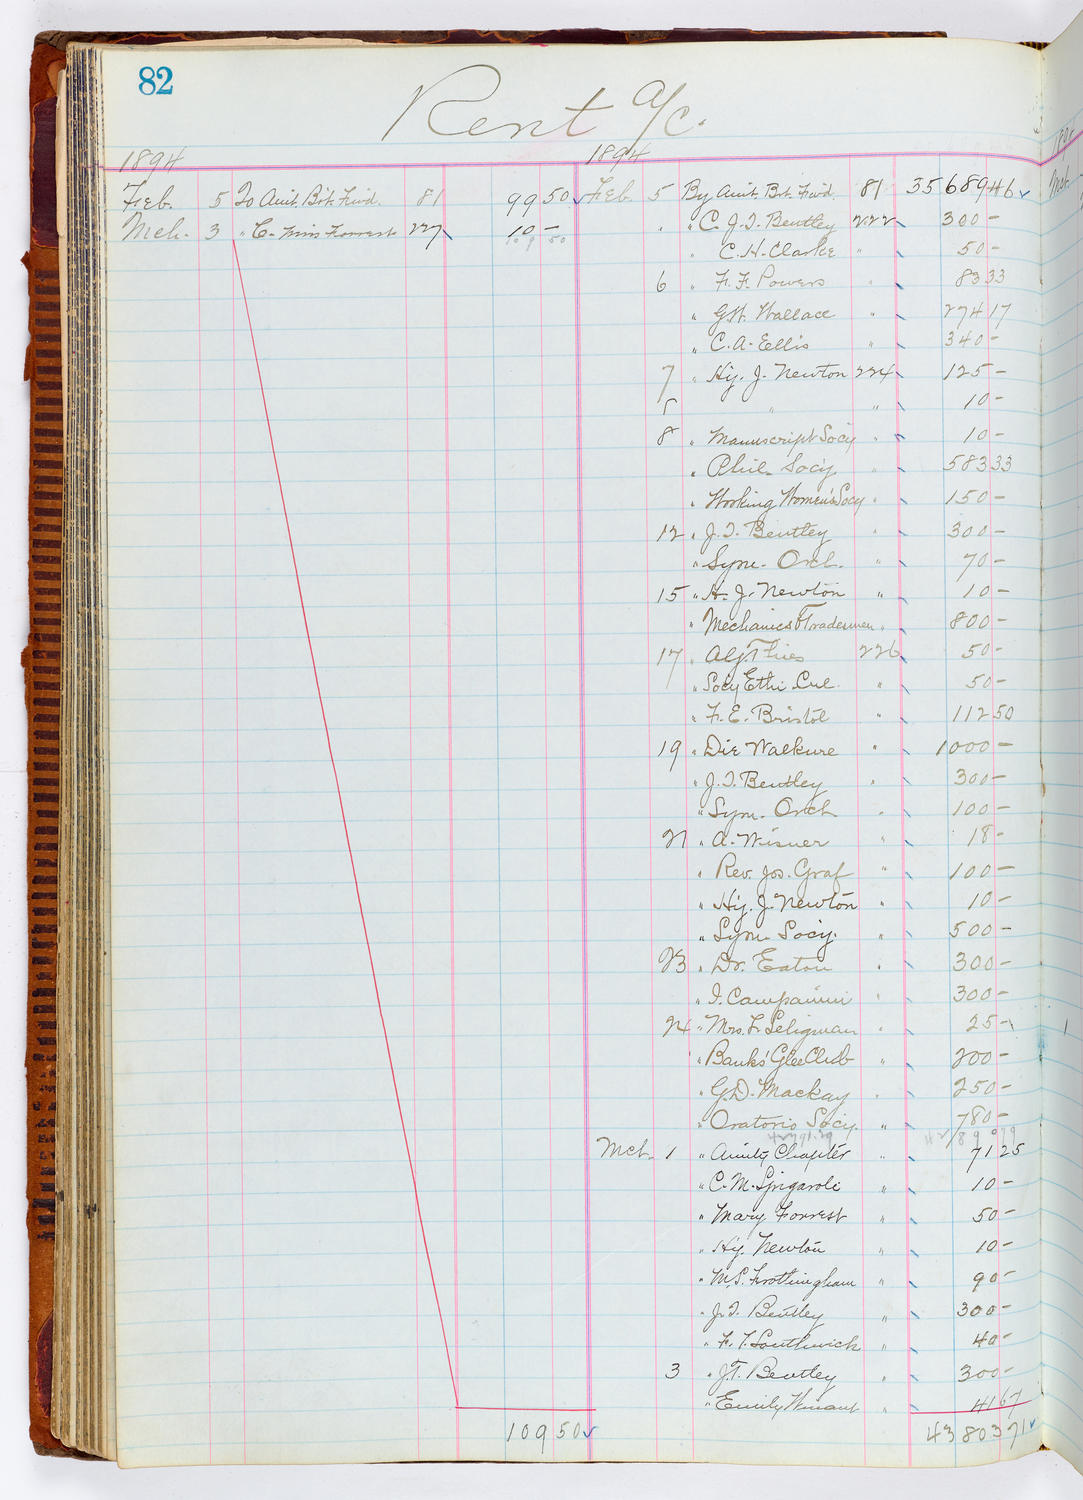 82
Rent a/c.
1894
Feb. 5 To Amt. Bt. Fwd. 81 99 50
Mch. 3 " C- Miss Forrest 227 10 -
10 9 50
109 50
1894
Feb. 5 By Amt. Bt. Fwd. 81 35689 46
" " C. J. T. Bentley 222 300 -
" C. H. Clarke " 50 -
6 " F. F. Powers " 83 33
" G.H. Wallace " 274 17
" C. A. Ellis " 340 -
7 " Hy. J. Newton 224 125 -
" " 10 -
8 " Manuscript Socy " 10 -
" Phil- Socy. " 583 33
" Working Women's Socy " 150 -
12 " J. T. Bentley " 300 -
" Sym. Orch. " 70 -
15 " H. J. Newton " 10 -
" Mechanics & Tradesmen " 800 -
17 " 226 50 -
" Socy Ethi. Cul. " 50 -
" F. E. Bristol " 112 50
19 " Die Walkure " 1000 -
" J. T. Bentley " 300 -
" Sym. Orch " 100 -
21 " A. Wisner " 18 -
" Rev. Jos. Graf " 100 -
" Hy. J. Newton " 10 -
" Sym. Socy. " 500 -
23 " Dr. Eaton " 300 -
" I. Campanini " 300 -
24 " Mrs. F. Seligman " 25 -
" Banks' Glee Club " 200 -
" G. D. Mackay " 250 -
" Oratorio Socy. " 780 -
Mch. 1 " Amity Chapter " 71 25
" C. M. Spigaroli " 10 -
" Mary Forrest " 50 -
" Hy. Newton " 10 -
" M. S. Frothingham " 90 -
" J. T. Bentley " 300 -
" F. T. Southwick " 40 -
3 " J. T. Bentley " 300 -
" Emily Winant " 41 67
43803 71
Mch.